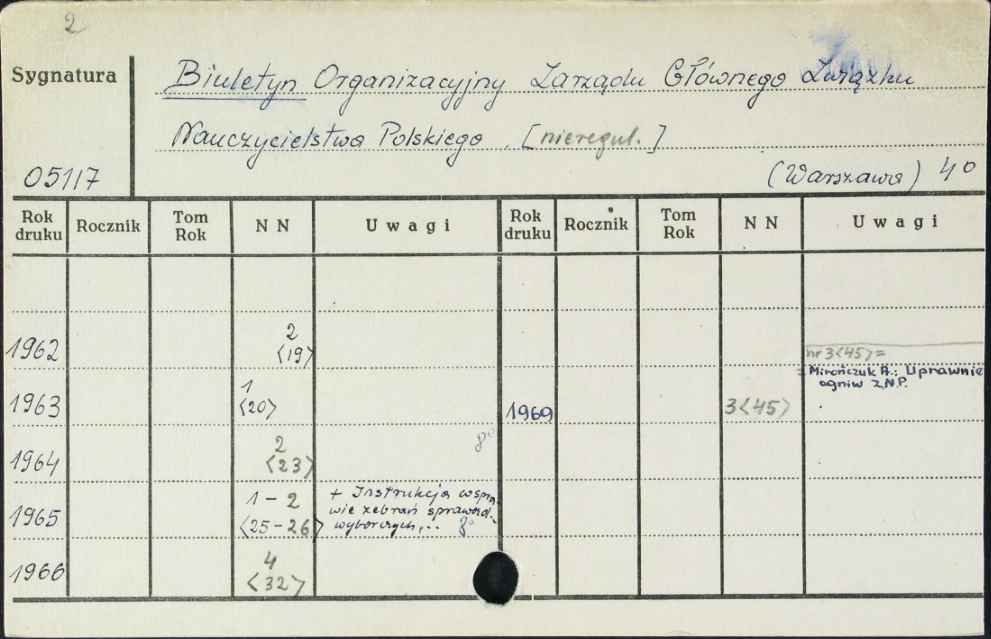 2
Sygnatura
Biuletyn Organizacyjny Zarządu Głównego Związku
Nauczycielstwa Polskiego. [nieregul.]
05117
(Warszawa) 4°
Rok druku Rocznik Tom Rok NN Uwagi Rok druku Rocznik Tom Rok NN Uwagi
1962 2 <19>
nr 3<45> =
= Mirończuk A.: Uprawnie
ogniw Z.N.P.
1963 1 <20>
1969 3<45>
1964 2 <23> 8°
1965 1-2 <25-26>
+ Instrukcja w spra
wie zebrań sprawozd.-
wyborczych,... 8°
1966 4 <32>